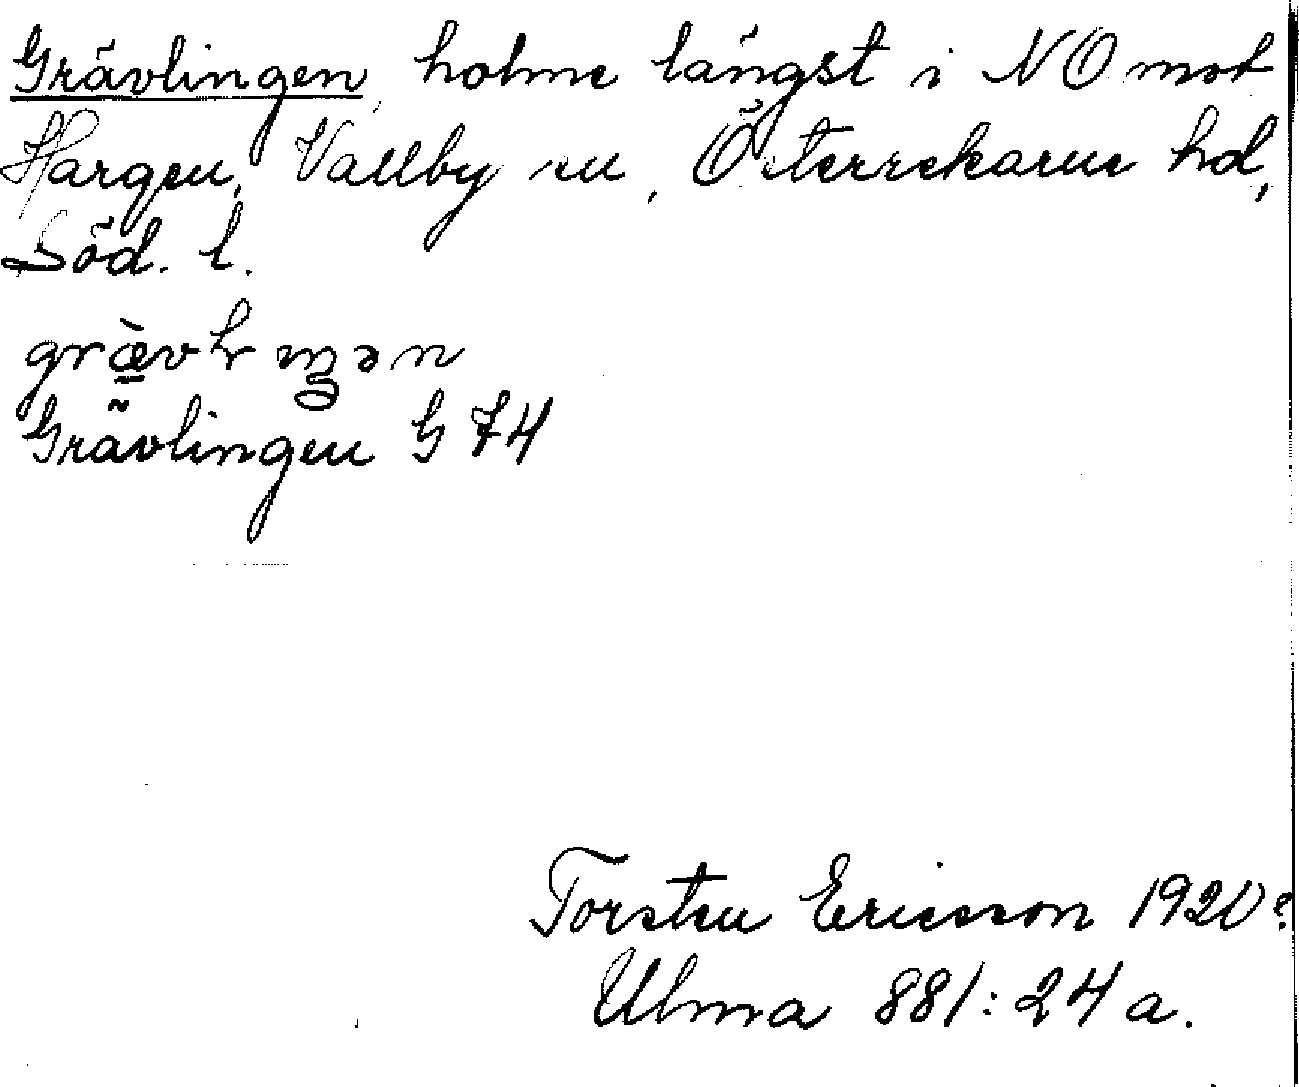 Grävlingen, holme längst i NO mot
Hargen, Vallby sn, Österrekarne hd,
Söd. l.
Grävlingen G 74
Torsten Ericsson 1920?
Ulma 881:24 a.